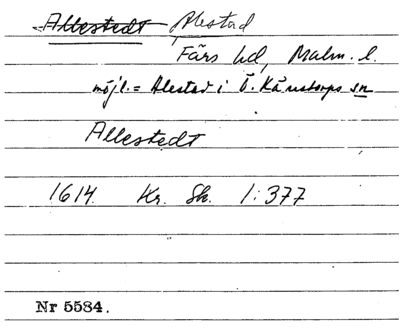 Allestedt Alestad
Färs hd, Malm. l.
möjl. = Alestad i Ö. Kärrstorps sn
Allestedt
1614. Kr. Sk. 1:377
Nr 5584.